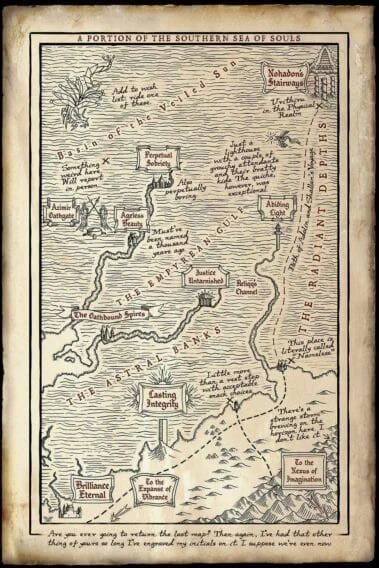 A PORTION OF THE SOUTHERN SEA OF SOULS
Nohadon's
Stairways
Add to wish
list: ride one
of these.
Urithiru
in the Physical
Realm
Basin of the Veiled Sun
Just a
lighthouse
with a couple of
grouchy attendants
and their bratty
kids. The quiche,
however, was
exceptional
Something
weird here.
Will report
in person
Perpetual
Sobriety
Also
perpetually
boring
Azimir
Oathgate
Ageless
Beauty
Must've
been named
a thousand
years ago
Abiding
Light
THE EMPYREAN GULF
Path of Adolin and Shallan's Voyage
THE RADIANT DEPTHS
Justice
Untarnished
Relic's
Channel
The Oathbound Spires
THE ASTRAL BANKS
This place is
literally called
"Nameless"
Little more
than a rest stop
with acceptable
snack choices
Lasting
Integrity
"There's a
strange storm
brewing on the
horizon here. I
don't like it
Brilliance
Eternal
To the
Expanse of
Vibrance
To the
Nexus of
Imagination
Are you ever going to return the last map? Then again, I've had that other
thing of yours so long I've engraved my initials on it. I suppose we're even now